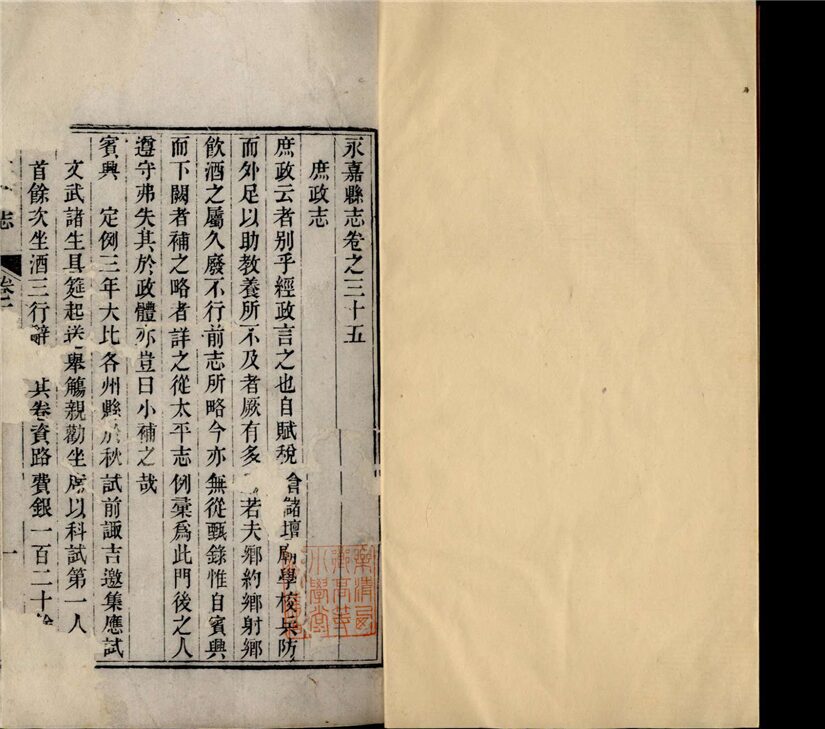 永嘉縣志卷之三十五
庶政志
庶政云者別乎經政言之也自賦稅倉儲壇廟學校兵防
而外足以助教養所不及者厥有多若夫鄉約鄉射鄉
飲酒之屬久廢不行前志所略今亦無從甄錄惟自賓興
而下闕者補之略者詳之從太平志例彙爲此門後之人
遵守弗失其於政體亦豈曰小補之哉
賓興 定例三年大比各州縣於秋試前諏吉邀集應試
文武諸生具筵起送舉觴親勸坐席以科試第一人
首餘次坐酒三行辭 其卷資路費銀一百二十餘
志
卷
一